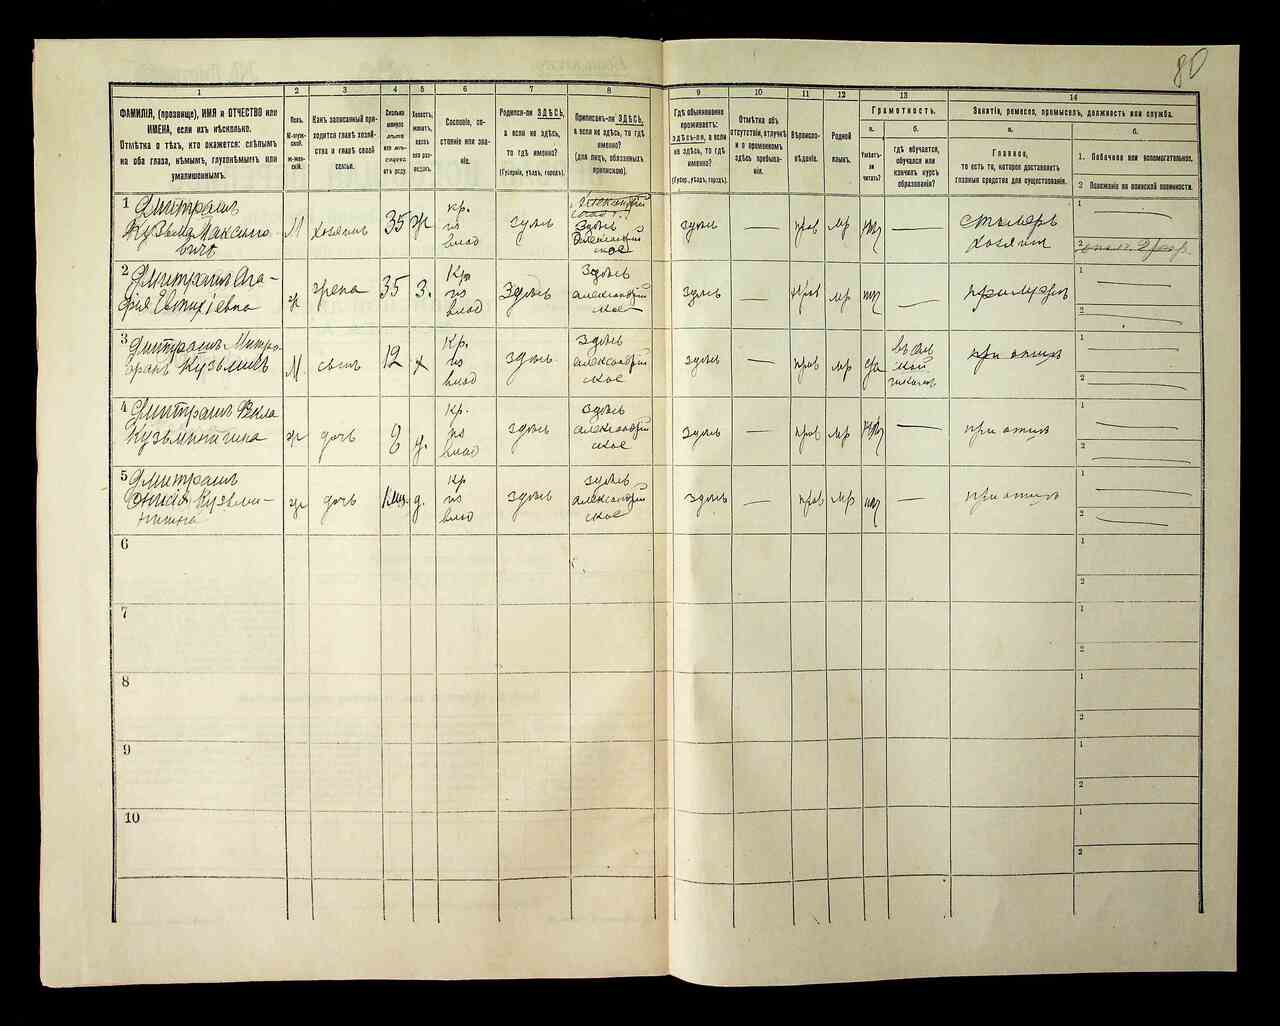 80
1 2 3 4 5 6 7 8 9 10 11 12 13 14
ФАМИЛІЯ, (прозвище), ИМЯ и ОТЧЕСТВО или
ИМЕНА, если ихъ нѣсколько.
Отмѣтка о тѣхъ, кто окажется: слѣпымъ
на оба глаза, нѣмымъ, глухонѣмымъ или
умалишеннымъ.
Полъ.
М-муж-
ской.
Ж-жен-
скій.
Какъ записанный при-
ходится главѣ хозяй-
ства и главѣ своей
семьи.
Сколько
минуло
лѣтъ
или мѣ-
сяцевъ
отъ роду.
Холостъ,
женатъ,
вдовъ
или раз-
веденъ.
Сословіе, со-
стояніе или зва-
ніе.
Родился-ли ЗДѢСЬ,
а если не здѣсь,
то гдѣ именно?
(Губернія, уѣздъ, городъ).
Приписанъ-ли ЗДѢСЬ,
а если не здѣсь, то гдѣ
именно?
(для лицъ, обязанныхъ
припискою).
Гдѣ обыкновенно
проживаетъ:
здѣсь-ли, а если
не здѣсь, то гдѣ
именно?
(Губер., уѣздъ, городъ).
Отмѣтка объ
отсутствіи, отлучкѣ
и о временномъ
здѣсь пребыва-
ніи.
Вѣроиспо-
вѣданіе.
Родной
языкъ.
Грамотность.
а.
Умѣетъ-
ли
читать?
б.
гдѣ обучается,
обучался или
кончилъ курсъ
образованія?
Занятіе, ремесло, промыселъ, должность или служба.
а.
Главное,
то есть то, которое доставляетъ
главныя средства для существованія.
б.
1. Побочное или вспомогательное.
2 Положеніе по воинской повинности.
1 Дмитрашъ
Кузьма Максимо-
вичъ
М хозяинъ 35 ж
кр.
из
влад
здѣсь
Здѣсь
Александрій
ское
здѣсь — прав мр нѣт —
столяръ
хозяин
1
2
2 Дмитрашъ Ага-
фія Евтихіевна
ж жена 35 з.
Кр
из
влад
Здѣсь
Здѣсь
александрій
ское
здѣсь — прав мр нѣт —
при мужѣ
1
2
3 Дмитрашъ Митро-
фанъ Кузьмичъ
М. сынъ 12 х
Кр.
из
влад
здѣсь
здѣсь
александрій
ское
здѣсь — прав мр да
въ сель
ской
школѣ
при отцѣ
1
2
4 Дмитрашъ Фекла
Кузьминична
ж дочь 8 д.
Кр.
из
влад
здѣсь
здѣсь
александрій
ское
здѣсь — прав мр нѣт —
при отцѣ
1
2
5 Дмитрашъ
Онисія Кузьми-
нична
ж дочь 1 мц. д.
Кр
из
влад
здѣсь
здѣсь
александрій
ское
здѣсь — прав мр нѣт —
при отцѣ
1
2
6
1
2
7
1
2
8
1
2
9
1
2
10
1
2